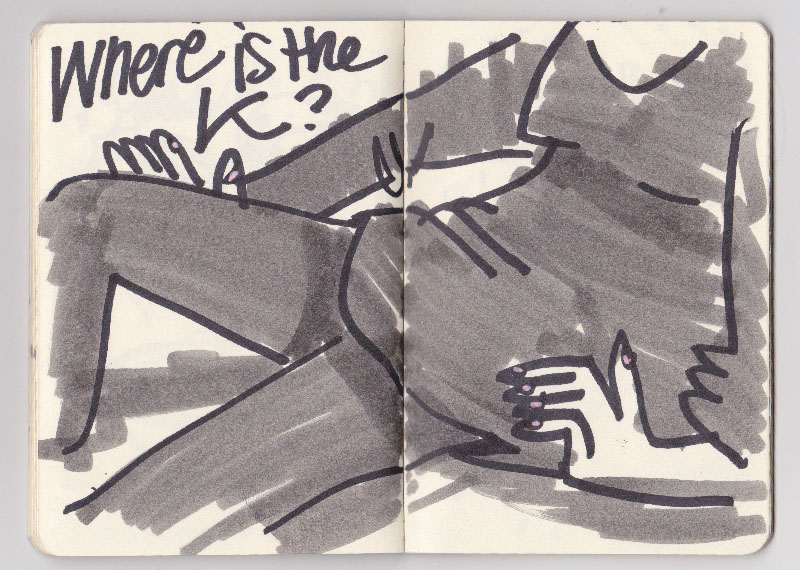 Where is the
K?